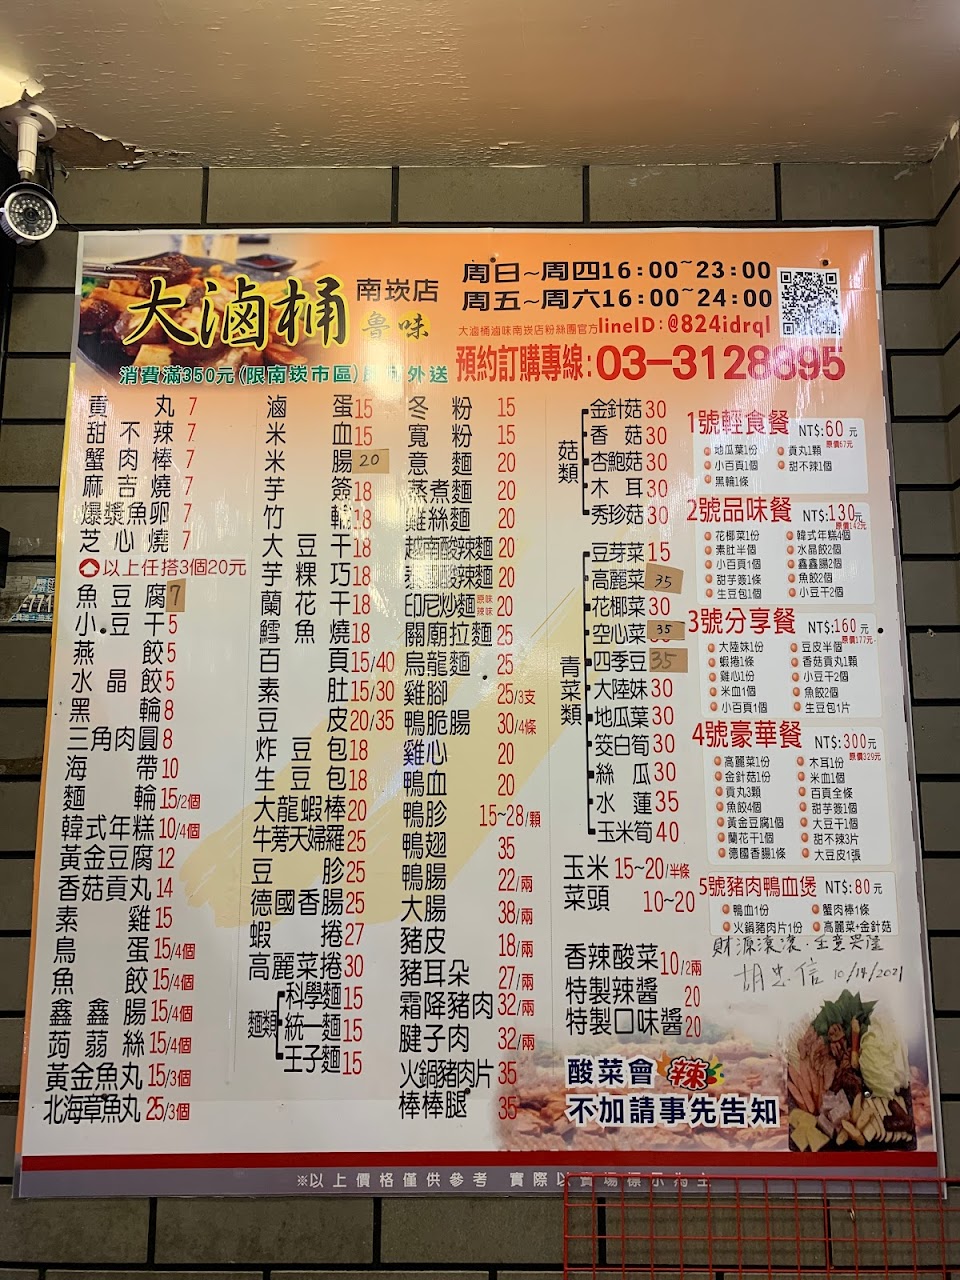 大滷桶
魯味
南崁店
周日~周四16:00~23:00
周五~周六16:00~24:00
大滷桶滷味南崁店粉絲團官方lineID:@824idrql
消費滿350元(限南崁市區) 外送
預約訂購專線:03-3128895
貢丸 7
甜不辣 7
蟹肉棒 7
麻吉燒 7
爆漿魚卵 7
芝心燒 7
以上任搭3個20元
魚豆腐 7
小豆干 5
燕餃 5
水晶餃 5
黑輪 8
三角肉圓 8
海帶 10
麵輪 15/2個
韓式年糕 10/4個
黃金豆腐 12
香菇貢丸 14
素雞 15
鳥蛋 15/4個
魚餃 15/4個
鑫鑫腸 15/4個
蒟蒻絲 15/4個
黃金魚丸 15/3個
北海章魚丸 25/3個
滷蛋 15
米血 15
米腸 20
芋簽 18
竹輪 18
大豆干 18
芋粿巧 18
蘭花干 18
鱈魚燒 18
百頁 15/40
素肚 15/30
豆皮 20/35
炸豆包 18
生豆包 18
大龍蝦棒 20
牛蒡天婦羅 25
豆胗 25
德國香腸 25
蝦捲 27
高麗菜捲 30
麵類
科學麵 15
統一麵 15
王子麵 15
冬粉 15
寬粉 15
意麵 20
蒸煮麵 20
雞絲麵 20
越南酸辣麵 20
酸辣麵 20
印尼炒麵 原味 辣味 20
關廟拉麵 25
烏龍麵 25
雞腳 25/3支
鴨脆腸 30/4條
雞心 20
鴨血 20
鴨胗 15~28/顆
鴨翅 35
鴨腸 22/兩
大腸 38/兩
豬皮 18/兩
豬耳朵 27/兩
霜降豬肉 32/兩
腱子肉 32/兩
火鍋豬肉片 35
棒棒腿 35
菇類
金針菇 30
香菇 30
杏鮑菇 30
木耳 30
秀珍菇 30
青菜類
豆芽菜 15
高麗菜 35
花椰菜 30
空心菜 35
四季豆 35
大陸妹 30
地瓜葉 30
筊白筍 30
絲瓜 30
水蓮 35
玉米筍 40
玉米 15~20/半條
菜頭 10~20
香辣酸菜 10/2兩
特製辣醬 20
特製口味醬 20
酸菜會辣
不加請事先告知
1號輕食餐 NT$:60元
原價67元
地瓜葉1份 貢丸1顆
小百頁1個 甜不辣1個
黑輪1條
2號品味餐 NT$:130元
原價142元
花椰菜1份 韓式年糕4個
素肚半個 水晶餃2個
小百頁1個 鑫鑫腸2個
甜芋簽1條 魚餃2個
生豆包1個 小豆干2個
3號分享餐 NT$:160元
原價177元
大陸妹1份 豆皮半個
蝦捲1條 香菇貢丸1顆
雞心1份 小豆干2個
米血1個 魚餃2個
小百頁1個 生豆包1片
4號豪華餐 NT$:300元
原價329元
高麗菜1份 木耳1份
金針菇1份 米血1個
貢丸3顆 百頁全條
魚餃4個 甜芋簽1個
黃金豆腐1個 大豆干1個
蘭花干1個 甜不辣3片
德國香腸1條 大豆皮1張
5號豬肉鴨血煲 NT$:80元
鴨血1份 蟹肉棒1條
火鍋豬肉片1份 高麗菜+金針菇
財源滾滾·生意興隆
胡忠信 10/14/2021
※以上價格僅供參考 實際以賣場標示為主